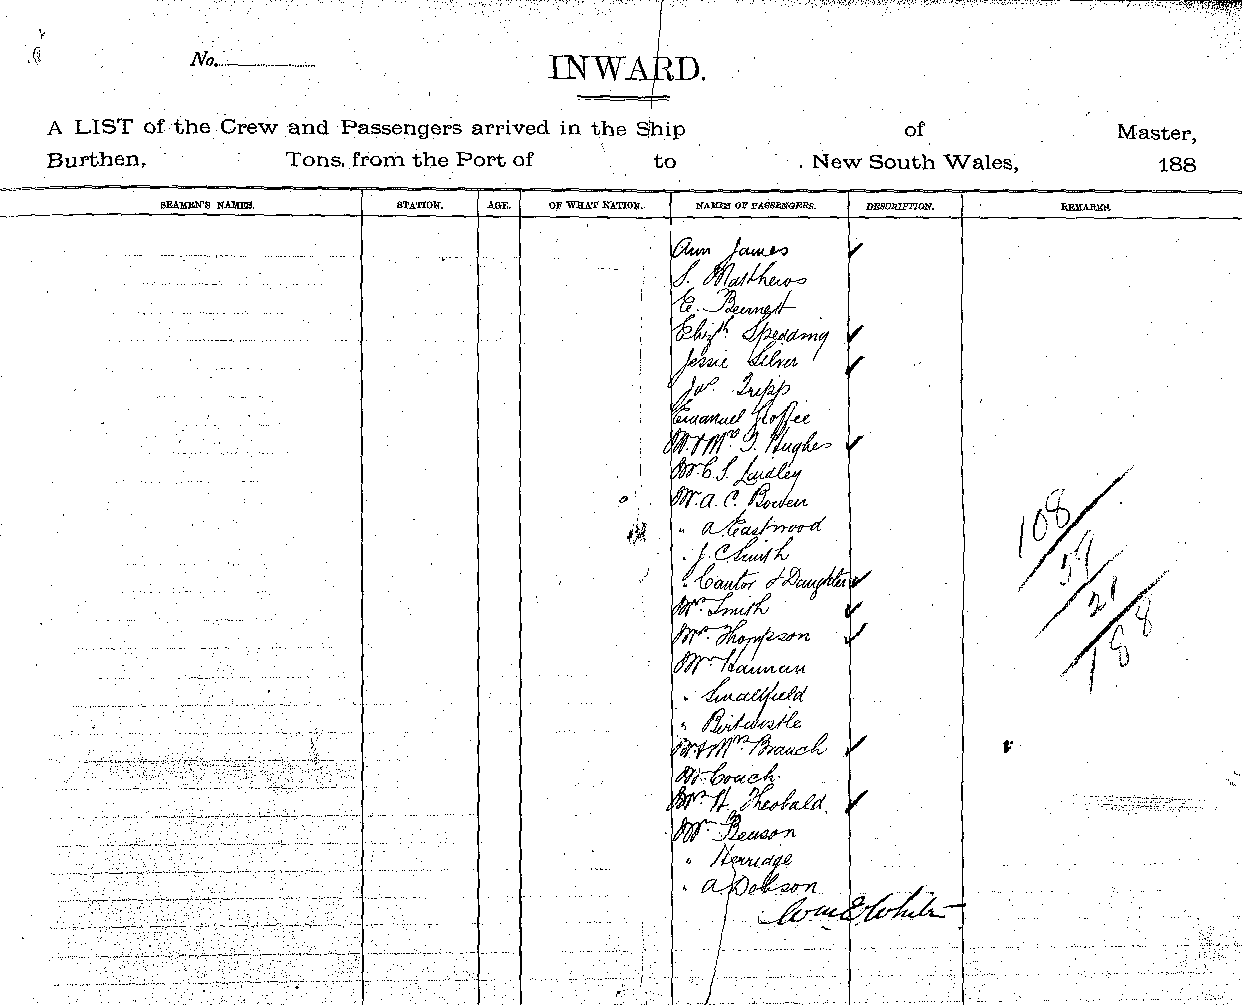 No.
INWARD.
A LIST of the Crew and Passengers arrived in the Ship of Master,
Burthen, Tons, from the Port of to , New South Wales, 188
SEAMEN'S NAMES. STATION. AGE. OF WHAT NATION. NAMES OF PASSENGERS. DESCRIPTION. REMARKS.
Ann James ✓
S. Matthews
E. Bennett
Elizth Spedding ✓
Jessie Silver ✓
Jas. Tripp
Emanuel
Mr & Mrs T. Hughes ✓
Mr C. S. Laidley
Mr A. C. Bowen
" A Eastwood
" J. C Smith
" Cantor & Daughter ✓
Mrs Smith ✓
Mrs Thompson ✓
Mr Hannan
" Smallfield
" Birtwistle
Mr & Mrs Branch ✓
Mr Couch
Mrs H. Theobald ✓
Mr Benson
" Herridge
" A Dobson
Wm E White
108
59
21
188